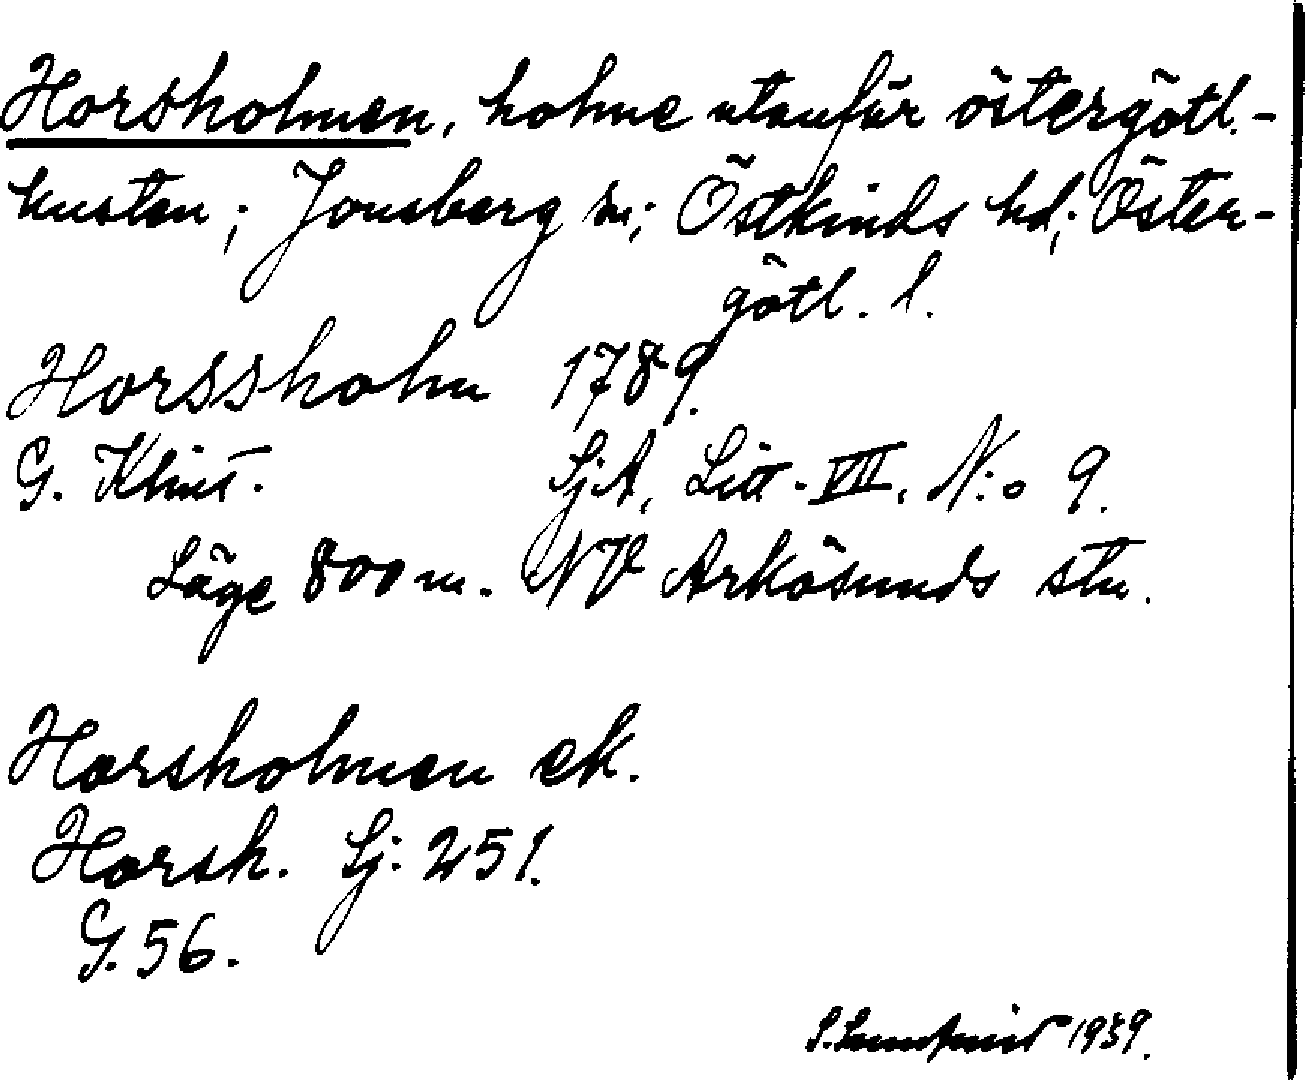 Horsholmen, holme utanför östergötl.-
kusten; Jonsberg sn; Östkinds hd; Öster-
götl. l.
Horssholm 1789.
G. Klint. SjA, Litt. VII. N:o 9.
Läge 800 m. NV Arkösunds stn.
Horsholmen ek.
Horsh. Sj: 251.
G. 56.
S. 1939.